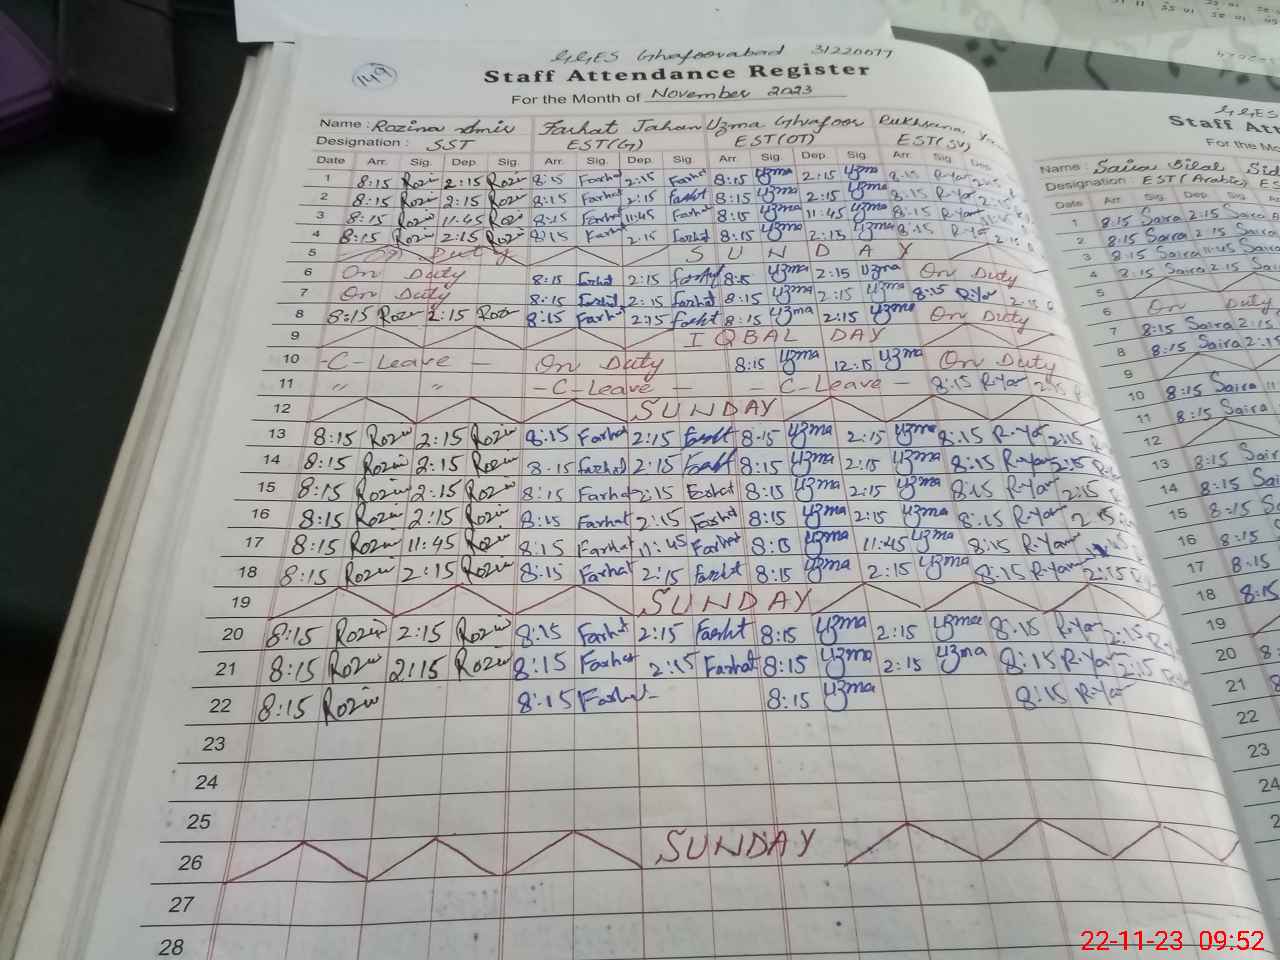 GGES Ghafoorabad 31220077
149
Staff Attendance Register
For the Month of November 2023
Name : Rozina Amir Farhat Jahan Uzma Ghafoor Rukhsana
Designation : SST EST(G) EST(OT) EST(SV)
Date Arr. Sig. Dep. Sig. Arr. Sig. Dep. Sig Arr. Sig. Dep. Sig. Arr. Sig. Dep.
1 8:15 Rozin 2:15 Rozin 8:15 Farhat 2:15 Farhat 8:15 Uzma 2:15 Uzma 8:15 R-Yar
2 8:15 Rozin 2:15 Rozin 8:15 Farhat 2:15 Farhat 8:15 Uzma 2:15 Uzma 8:15 R-Yar 2:15
3 8:15 Rozin 11:45 Rozin 8:15 Farhat 11:45 Farhat 8:15 Uzma 11:45 Uzma 8:15 R-Yar 11:45
4 8:15 Rozin 2:15 Rozin 8:15 Farhat 2:15 Farhat 8:15 Uzma 2:15 Uzma 8:15 R-Yar 2:15
5 Duty SUNDAY
6 On Duty 8:15 Farhat 2:15 Farhat 8:15 Uzma 2:15 Uzma On Duty
7 On Duty 8:15 Farhat 2:15 Farhat 8:15 Uzma 2:15 Uzma 8:15 R-Yar 2:15
8 8:15 Rozin 2:15 Rozin 8:15 Farhat 2:15 Farhat 8:15 Uzma 2:15 Uzma On Duty
9 IQBAL DAY
10 -C-Leave- On Duty 8:15 Uzma 12:15 Uzma On Duty
11 " " -C-Leave- -C-Leave- 8:15 R-Yar 2:15
12 SUNDAY
13 8:15 Rozin 2:15 Rozin 8:15 Farhat 2:15 Farhat 8:15 Uzma 2:15 Uzma 8:15 R-Yar 2:15
14 8:15 Rozin 2:15 Rozin 8:15 Farhat 2:15 Farhat 8:15 Uzma 2:15 Uzma 8:15 R-Yar 2:15
15 8:15 Rozin 2:15 Rozin 8:15 Farhat 2:15 Farhat 8:15 Uzma 2:15 Uzma 8:15 R-Yar 2:15
16 8:15 Rozin 2:15 Rozin 8:15 Farhat 2:15 Farhat 8:15 Uzma 2:15 Uzma 8:15 R-Yar 2:15
17 8:15 Rozin 11:45 Rozin 8:15 Farhat 11:45 Farhat 8:15 Uzma 11:45 Uzma 8:15 R-Yar
18 8:15 Rozin 2:15 Rozin 8:15 Farhat 2:15 Farhat 8:15 Uzma 2:15 Uzma 8:15 R-Yar 2:15
19 SUNDAY
20 8:15 Rozin 2:15 Rozin 8:15 Farhat 2:15 Farhat 8:15 Uzma 2:15 Uzma 8:15 R-Yar 2:15
21 8:15 Rozin 2:15 Rozin 8:15 Farhat 2:15 Farhat 8:15 Uzma 2:15 Uzma 8:15 R-Yar 2:15
22 8:15 Rozin 8:15 Farhat 8:15 Uzma 8:15 R-Yar
23
24
25
26 SUNDAY
27
28
GGES
Staff
For the
Name : Saira Bilal
Designation EST(Arabic)
Date Arr. Sig. Dep. Sig.
1 8:15 Saira 2:15 Saira
2 8:15 Saira 2:15 Saira
3 8:15 Saira 11:45 Saira
4 8:15 Saira 2:15 Saira
5
6 On Duty
7 8:15 Saira 2:15
8 8:15 Saira 2:15
9
10 8:15 Saira
11 8:15 Saira
12
13 8:15
14 8:15
15 8:15
16 8:15
17 8:15
18 8:15
19
20
21
22
23
24
22-11-23 09:52